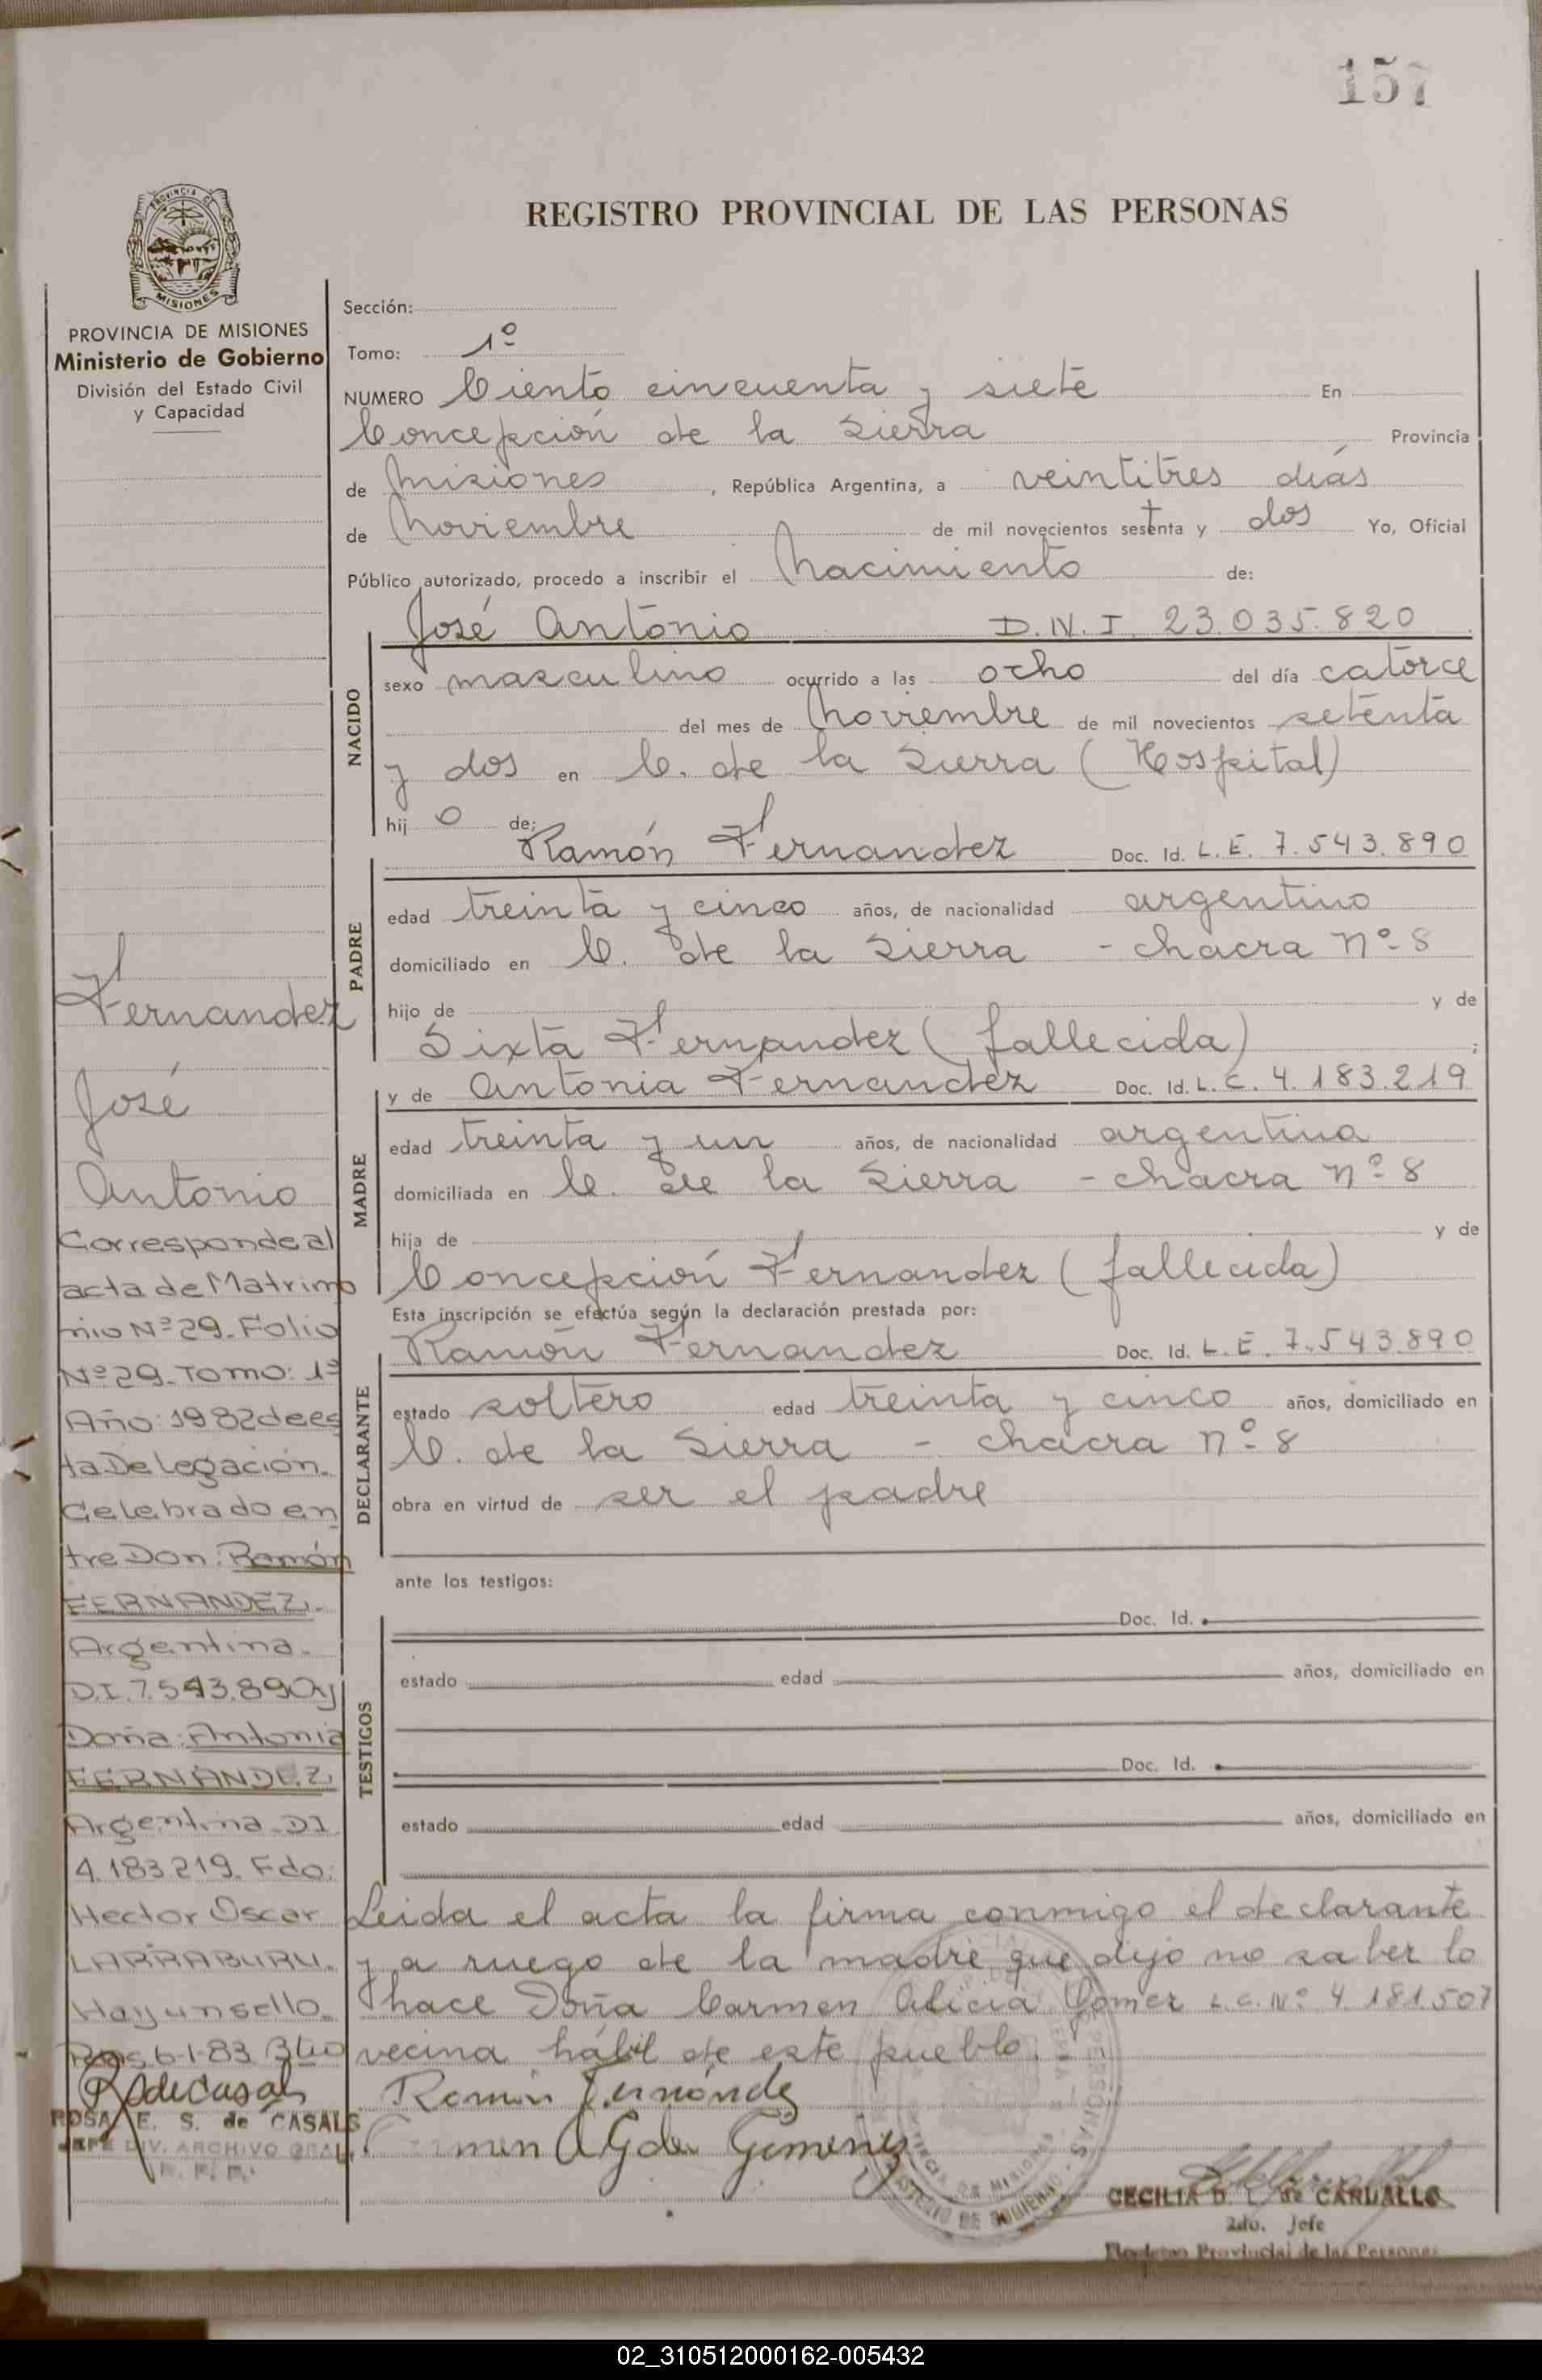 157
PROVINCIA DE
MISIONES
REGISTRO PROVINCIAL DE LAS PERSONAS
PROVINCIA DE MISIONES
Ministerio de Gobierno
División del Estado Civil
y Capacidad
Fernandez
José
Antonio
Corresponde al
acta de Matrimo
nio Nº 29. Folio
Nº 29. Tomo: 1º
Año: 1982 de es
ta Delegación.
Celebrado en
tre Don: Ramón
FERNANDEZ.
Argentina.
D.I. 7.543.890 y
Doña: Antonia
FERNANDEZ
Argentina DI
4.183.219. Fdo:
Hector Oscar
LARRABURU.
Hay un sello.
6-1-83
ROSA E. S. de CASALS
JEFE DIV. ARCHIVO GRAL.
Sección:
Tomo: 1º
NUMERO Ciento cincuenta y siete En
Concepción de la Sierra Provincia
de Misiones, República Argentina, a veintitres días
de Noviembre de mil novecientos setenta y dos Yo, Oficial
Público autorizado, procedo a inscribir el Nacimiento de:
José Antonio D.N.I. 23.035.820
NACIDO
sexo masculino ocurrido a las ocho del día catorce
del mes de Noviembre de mil novecientos setenta
y dos en C. de la Sierra (Hospital)
hij o de:
Ramón Fernandez Doc. Id. L.E. 7.543.890
PADRE
edad treinta y cinco años, de nacionalidad argentino
domiciliado en C. de la Sierra - chacra nº 8
hijo de y de
Sixta Fernandez (fallecida) ;
y de Antonia Fernandez Doc. Id. L.C. 4.183.219
MADRE
edad treinta y un años, de nacionalidad argentina
domiciliada en C. de la Sierra - chacra nº 8
hija de y de
Concepción Fernandez (fallecida)
Esta inscripción se efectúa según la declaración prestada por:
Ramón Fernandez Doc. Id. L.E. 7.543.890
DECLARANTE
estado soltero edad treinta y cinco años, domiciliado en
C. de la Sierra - chacra nº 8
obra en virtud de ser el padre
ante los testigos:
Doc. Id.
TESTIGOS
estado edad años, domiciliado en
Doc. Id.
estado edad años, domiciliado en
Leida el acta la firma conmigo el declarante
y a ruego de la madre que dijo no saber lo
hace Doña Carmen Alicia Gomez L.C. Nº 4.181.507
vecina hábil de este pueblo.
Ramón Fernández
CECILIA D. L. de CARBALLO
2do. Jefe
Registro Provincial de las Personas
02_310512000162-005432